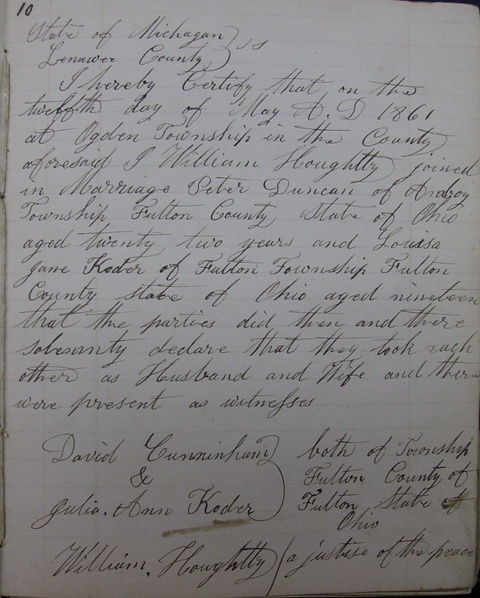 10
State of Michagan } ss
Lenawee County
I hereby Certify that on the
twelfth day of May A. D 1861
at Ogden Township in the County
aforesaid I William Houghtty joined
in Marriage Peter Duncan of Amboy
Township Fulton County State of Ohio
aged twenty two years and Louisa
Jane Koder of Fulton Township Fulton
County state of Ohio aged nineteen
that the parties did then and there
solemnty declare that they took each
other as Husband and Wife and there
were present as witnesses
David Cunninham } both of Township
& Fulton County of
Julia. Ann Koder Fulton State of
Ohio
William. Houghtty ( a justise of the peace